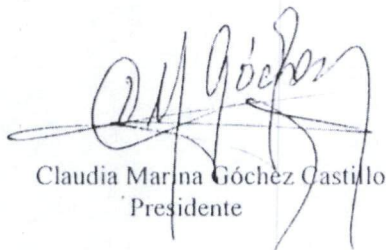 Claudia Marina Góchez Castillo
Presidente